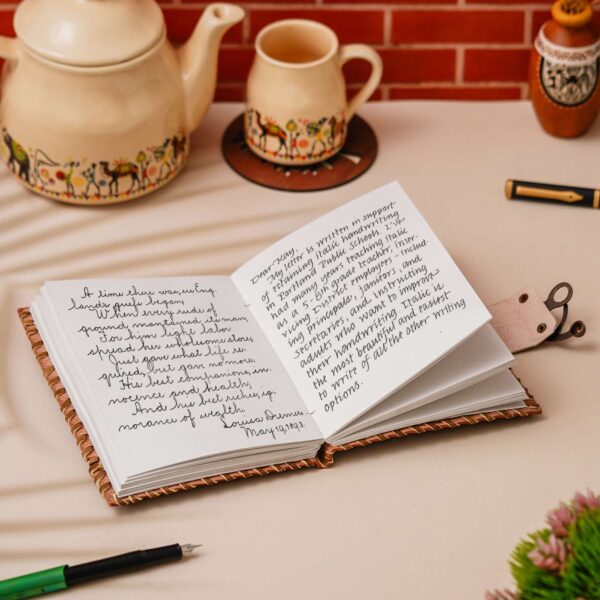 A time there was, ere Eng
lands griefs began,
When every rude of
ground maintained its man,
For him light labor
spread her wholesome store,
Just gave what life re
quired, but gave no more.
His best companions, in
nocence and health,
And his best riches, ig
norance of wealth.
May 19, 1892.
Dear Kay,
My letter is written in support
of retaining italic handwriting
in Portland Public Schools. I've
had many years teaching italic
as a 5-8th grade teacher, inser-
vicing District employers - includ-
ing principals, janitors, and
secretaries, and instructing
adults who want to improve
their handwriting. Italic is
the most beautiful and easiest
to write of all the other writing
options.